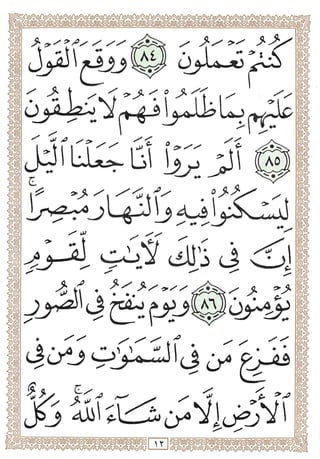 كُنتُمْ تَعْمَلُونَ ٨٤ وَوَقَعَ ٱلْقَوْلُ
عَلَيْهِم بِمَا ظَلَمُوا۟ فَهُمْ لَا يَنطِقُونَ
٨٥ أَلَمْ يَرَوْا۟ أَنَّا جَعَلْنَا ٱلَّيْلَ
لِيَسْكُنُوا۟ فِيهِ وَٱلنَّهَارَ مُبْصِرًا ۚ
إِنَّ فِى ذَٰلِكَ لَـَٔايَـٰتٍ لِّقَوْمٍ
يُؤْمِنُونَ ٨٦ وَيَوْمَ يُنفَخُ فِى ٱلصُّورِ
فَفَزِعَ مَن فِى ٱلسَّمَـٰوَٰتِ وَمَن فِى
ٱلْأَرْضِ إِلَّا مَن شَآءَ ٱللَّهُ ۚ وَكُلٌّ
١٢